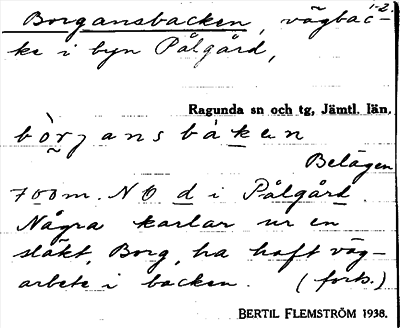 1-2.
Borgansbacken, vägbac-
ke i byn Pålgård,
Ragunda sn och tg, Jämtl. län.
bòrjansbàken
Belägen
700m. NO d i Pålgård.
Några karlar ur en
släkt, Borg, ha haft väg-
arbete i backen. (forts.)
BERTIL FLEMSTRÖM 1938.